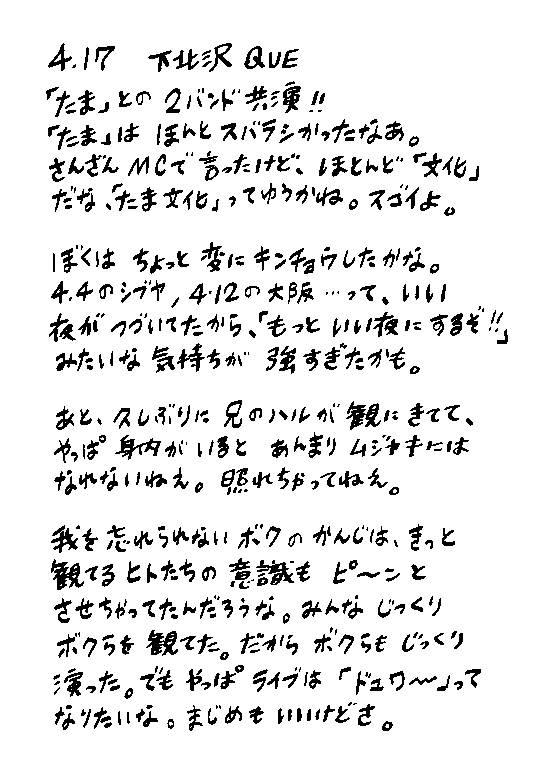 4.17 下北沢 QUE
「たま」との 2バンド 共演!!
「たま」は ほんと スバラシかったなあ。
さんざん MCで 言ったけど、ほとんど「文化」
だな、「たま文化」ってゆうかね。スゴイよ。
ぼくは ちょっと 変に キンチョウしたかな。
4.4のシブヤ, 4.12の大阪…って、いい
夜が つづいてたから、「もっと いい夜に するぞ!!」
みたいな 気持ちが 強すぎたかも。
あと、久しぶりに 兄のハルが 観にきてて、
やっぱ 身内が いると あんまり ムジャキには
なれないねえ。照れちゃってねえ。
我を 忘れられない ボクの かんじは、きっと
観てる ヒトたちの 意識も ピ〜ンと
させちゃってたんだろうな。みんな じっくり
ボクらを 観てた。だから ボクらも じっくり
演った。でも やっぱ ライブは 「ドュワ〜」って
なりたいな。まじめも いいけどさ。